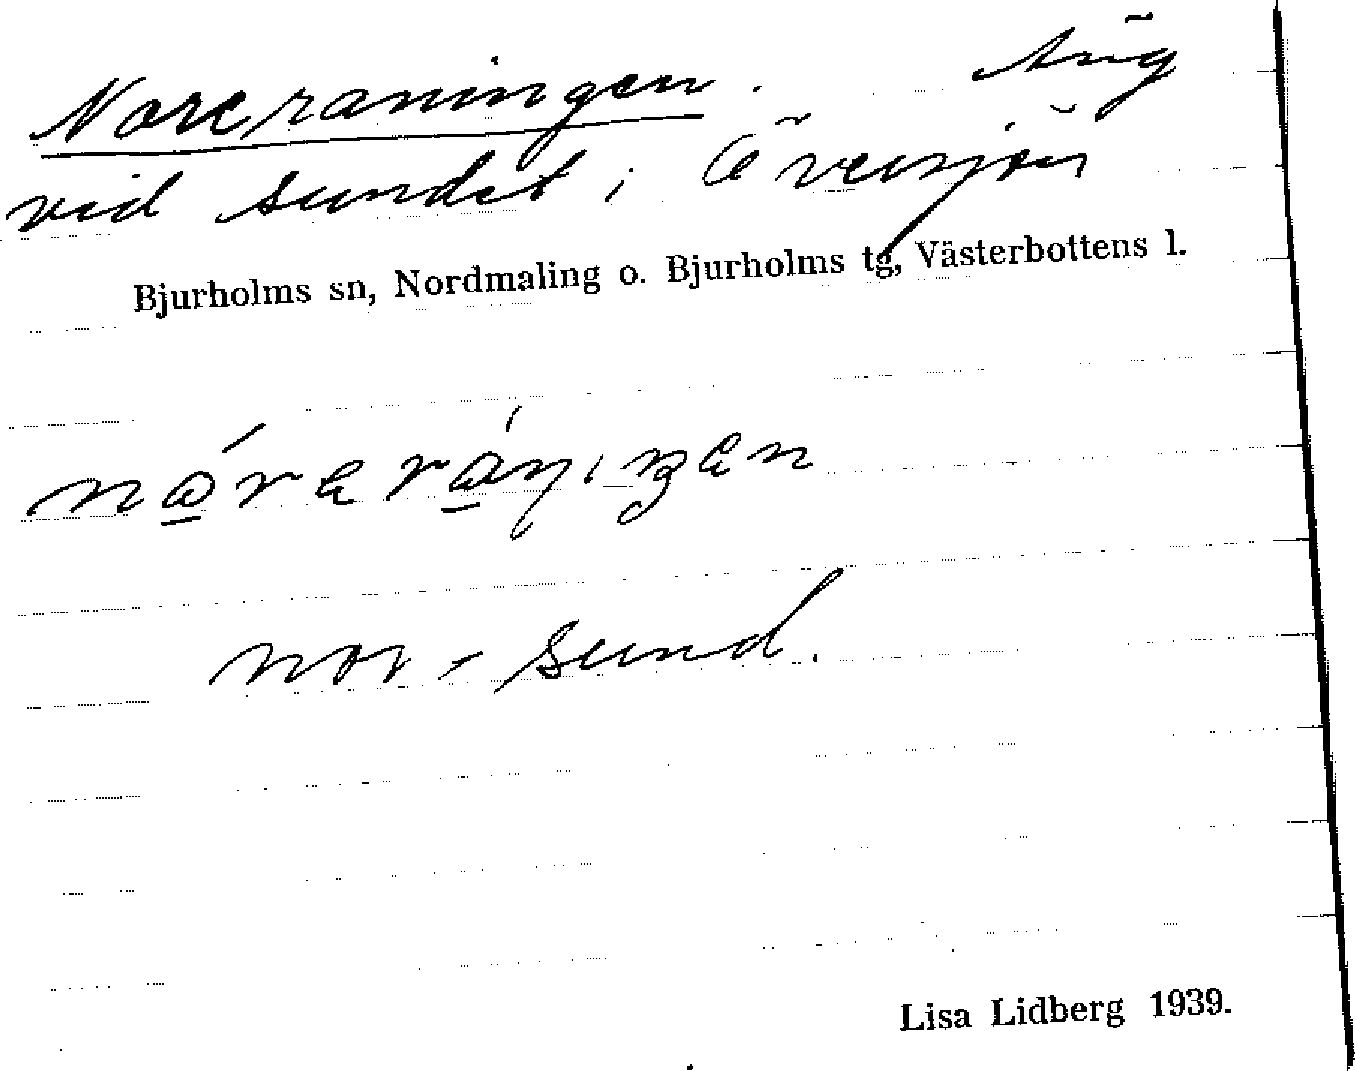 Noreraningen. Äng
vid sundet i Översjön
Bjurholms sn, Nordmaling o. Bjurholms tg, Västerbottens l.
nor = sund.
Lisa Lidberg 1939.